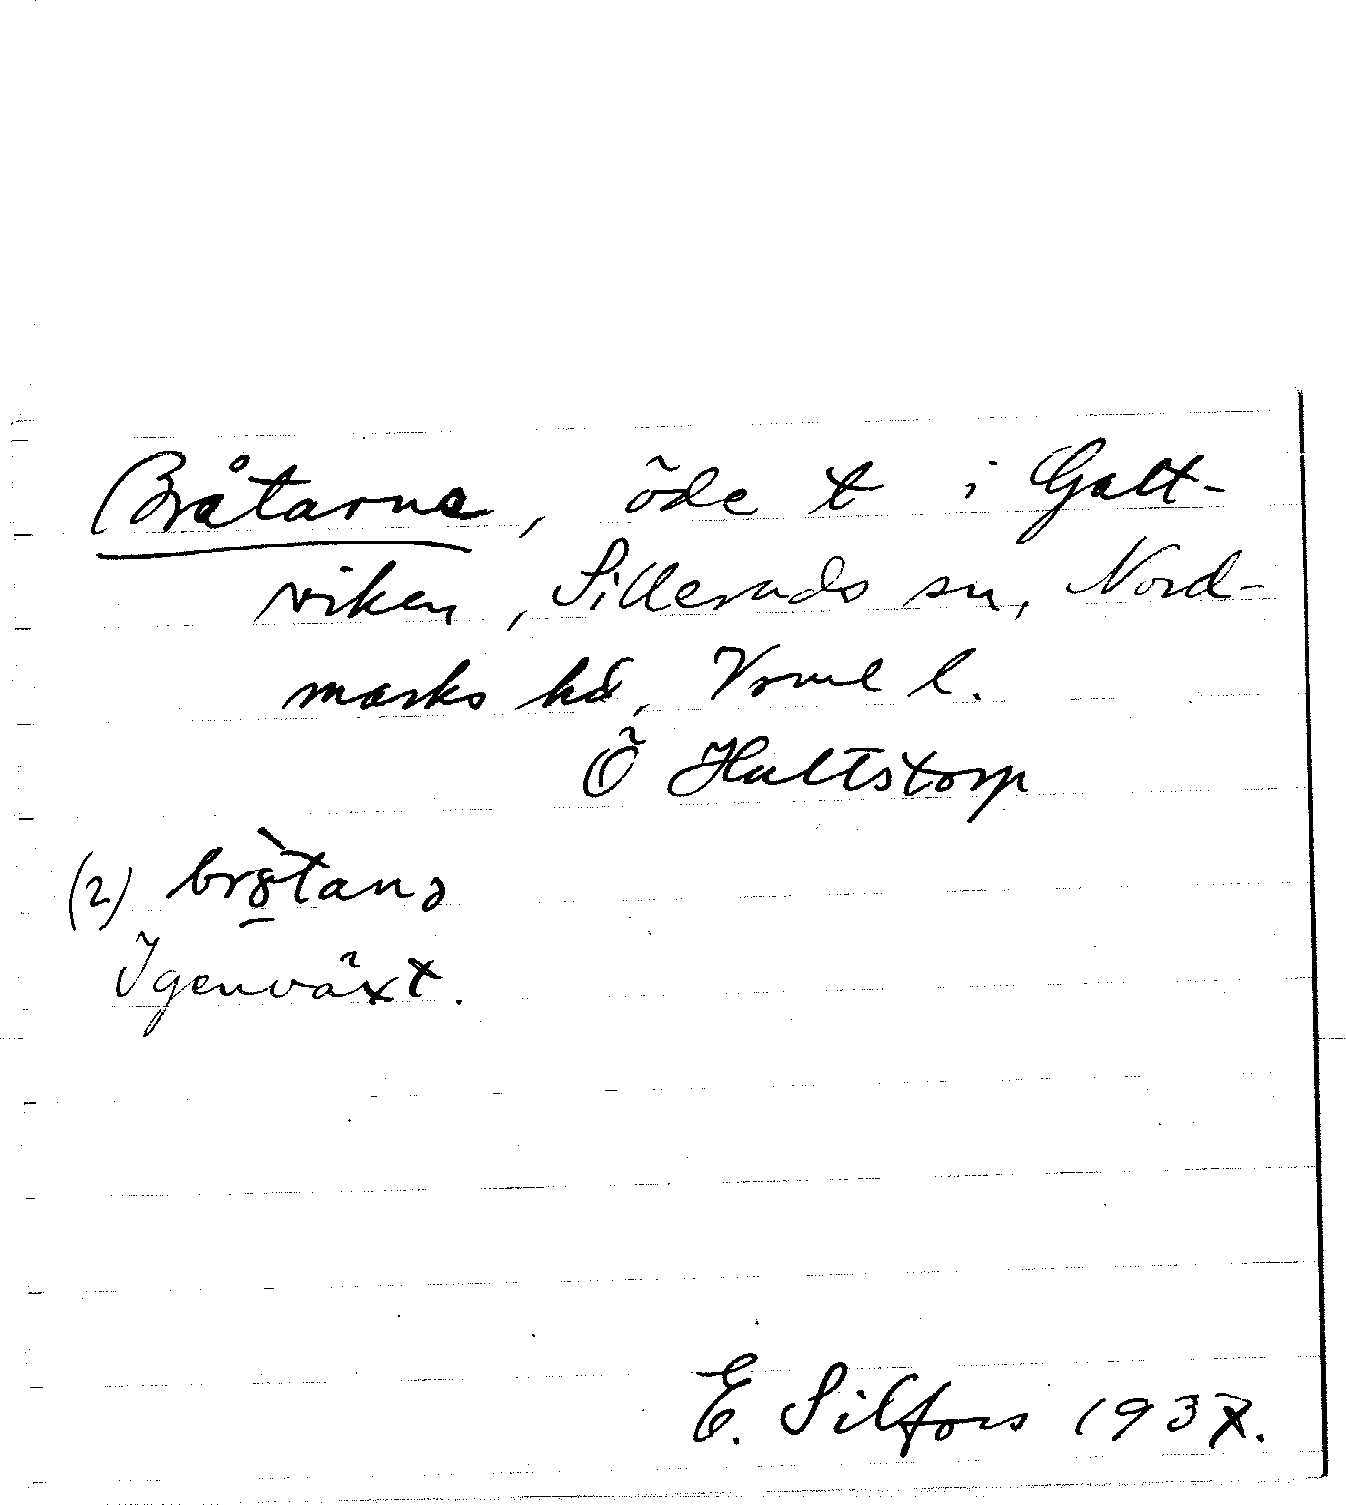 Bråtarne, öde t i Galt-
viken, Silleruds sn, Nord-
marks hd, Vrml l.
Ö Hultstorp
(2) brò̱tanə
Igenväxt.
E. Silfors 1937.